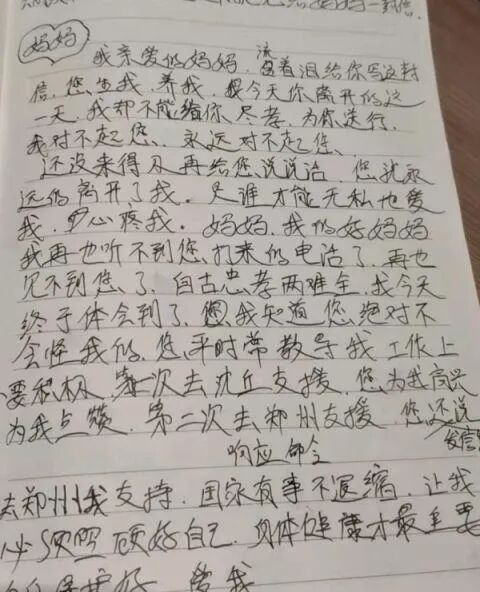 妈妈
我亲爱的妈妈、流着泪给你写这封
信，您生我、养我，今天你离开的这
一天，我却不能给你尽孝，为你送行，
我对不起您、永远对不起您、
还没来得及再给您说说话 您就永
远的离开了我。又谁才能无私地爱
我、心疼我。妈妈、我的好妈妈
我再也听不到您、打来的电话了、再也
见不到您了、自古忠孝两难全、我今天
终于体会到了、您、我知道您、绝对不
会怪我的、您、平时常教导我工作上
要积极、第一次去沈丘支援、您为我高兴
为我点赞、第二次去郑州支援、您还说
发信
响应命令
去郑州我支持、国家有事不退缩、让我
必须照顾好自己、身体健康才最重要
保护好 爱我